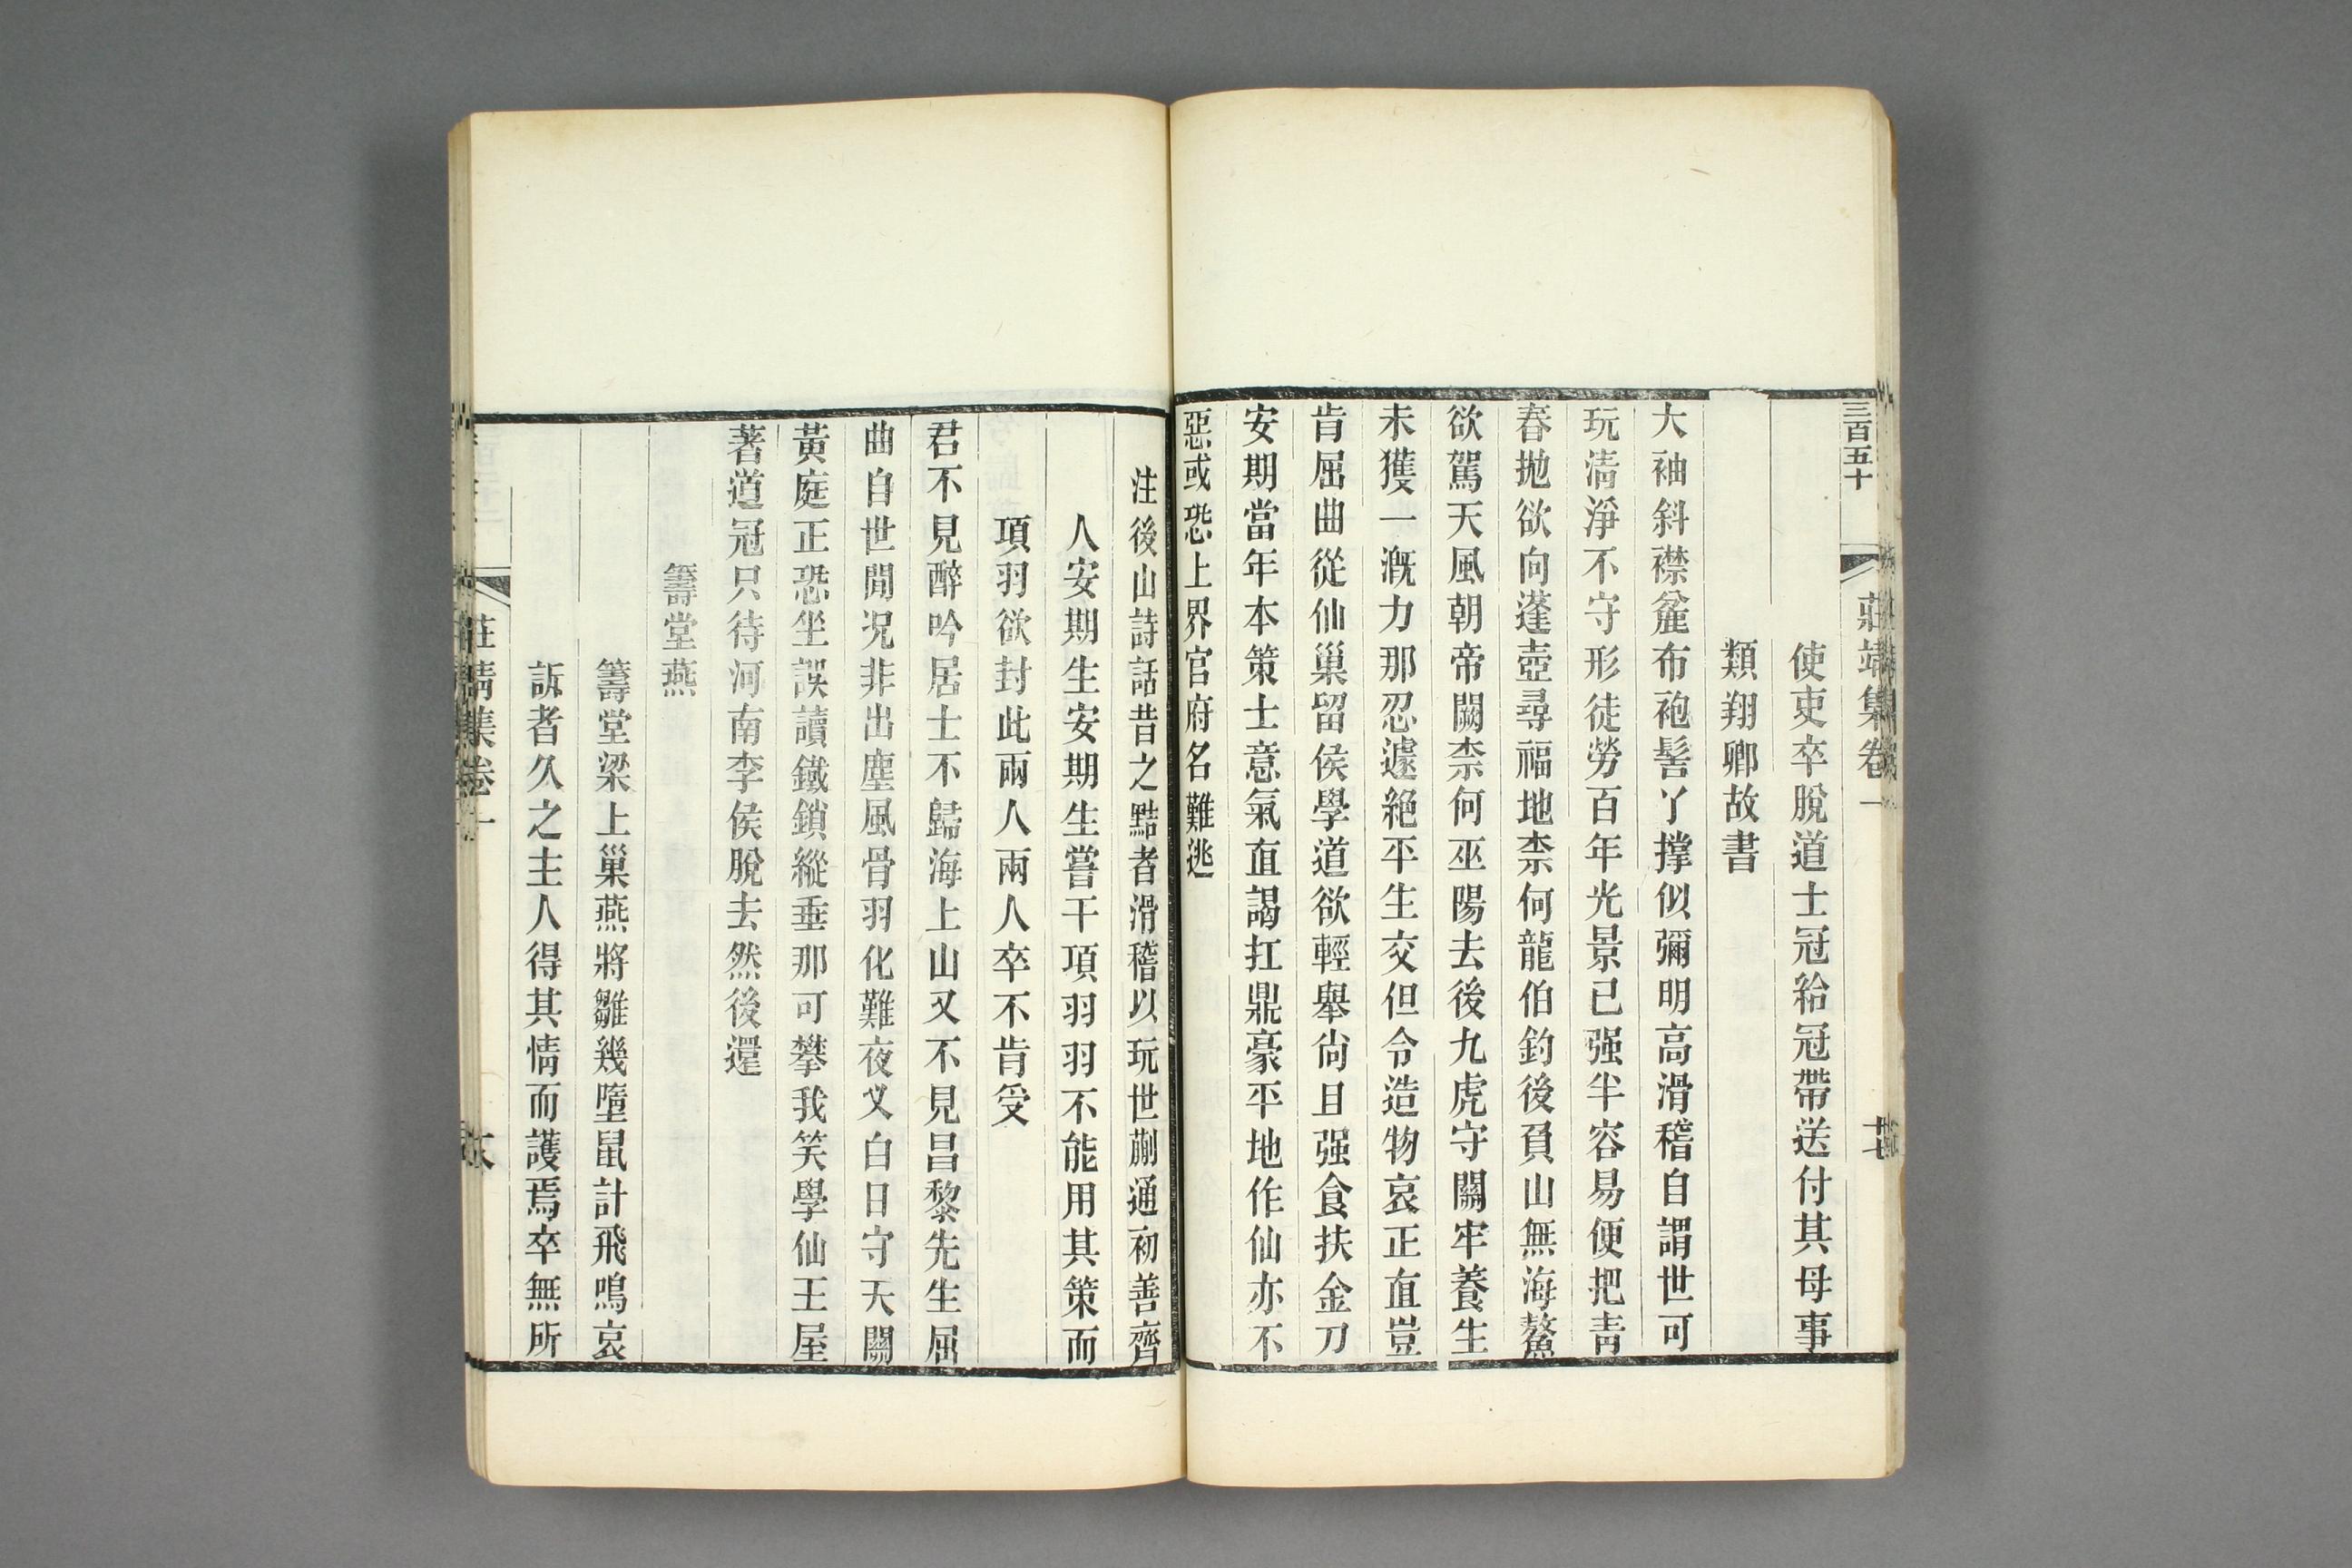 三百五十
莊靖集卷一
十七
使吏卒脫道士冠給冠帶送付其母事
類翔卿故書
大袖斜襟麄布袍髻丫撑似彌明高滑稽自謂世可
玩淸淨不守形徒勞百年光景已强半容易便把靑
春抛欲向蓬壺尋福地柰何龍伯釣後負山無海鰲
欲駕天風朝帝闕柰何巫陽去後九虎守關牢養生
未獲一漑力那忍遽絕平生交但令造物哀正直豈
肯屈曲從仙巢留侯學道欲輕舉尙且强食扶金刀
安期當年本策士意氣直謁扛鼎豪平地作仙亦不
惡或恐上界官府名難逃
注後山詩話昔之黠者滑稽以玩世蒯通初善齊
人安期生安期生嘗干項羽羽不能用其策而
項羽欲封此兩人兩人卒不肯受
君不見醉吟居士不歸海上山又不見昌黎先生屈
曲自世閒況非出塵風骨羽化難夜叉白日守天關
黃庭正恐坐誤讀鐵鎖縱垂那可攀我笑學仙王屋
著道冠只待河南李侯脫去然後還
籌堂燕
籌堂梁上巢燕將雛幾墮鼠計飛鳴哀
訴者久之主人得其情而護焉卒無所
莊靖集卷一